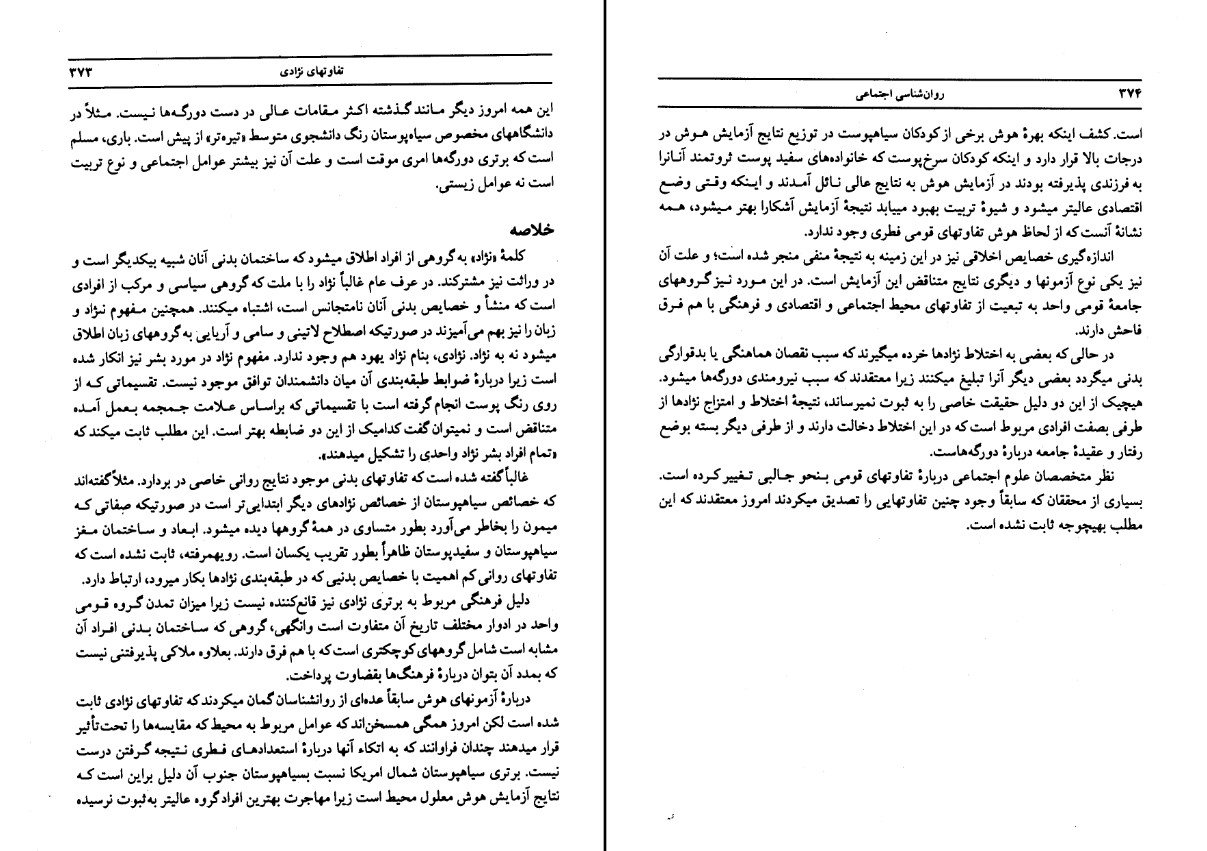 تفاوتهای نژادی ۳۷۳
این همه امروز دیگر مانند گذشته اکثر مقامات عالی در دست دورگه‌ها نیست. مثلاً در
دانشگاههای مخصوص سیاه‌پوستان رنگ دانشجوی متوسط «تیره‌تر» از پیش است. باری، مسلم
است که برتری دورگه‌ها امری موقت است و علت آن نیز بیشتر عوامل اجتماعی و نوع تربیت
است نه عوامل زیستی.
خلاصه
کلمهٔ «نژاد» به گروهی از افراد اطلاق میشود که ساختمان بدنی آنان شبیه بیکدیگر است و
در وراثت نیز مشترکند. در عرف عام غالباً نژاد را با ملت که گروهی سیاسی و مرکب از افرادی
است که منشأ و خصایص بدنی آنان نامتجانس است، اشتباه میکنند. همچنین مفهوم نژاد و
زبان را نیز بهم می‌آمیزند در صورتیکه اصطلاح لاتینی و سامی و آریایی به گروههای زبان اطلاق
میشود نه به نژاد. نژادی، بنام نژاد یهود هم وجود ندارد. مفهوم نژاد در مورد بشر نیز انکار شده
است زیرا دربارهٔ ضوابط طبقه‌بندی آن میان دانشمندان توافق موجود نیست. تقسیماتی که از
روی رنگ پوست انجام گرفته است با تقسیماتی که براساس علامت جمجمه بعمل آمده
متناقض است و نمیتوان گفت کدامیک از این دو ضابطه بهتر است. این مطلب ثابت میکند که
«تمام افراد بشر نژاد واحدی را تشکیل میدهند».
غالباً گفته شده است که تفاوتهای بدنی موجود نتایج روانی خاصی در بردارد. مثلاً گفته‌اند
که خصائص سیاهپوستان از خصائص نژادهای دیگر ابتدایی‌تر است در صورتیکه صفاتی که
میمون را بخاطر می‌آورد بطور متساوی در همهٔ گروهها دیده میشود. ابعاد و ساختمان مغز
سیاهپوستان و سفیدپوستان ظاهراً بطور تقریب یکسان است. رویهمرفته، ثابت نشده است که
تفاوتهای روانی کم اهمیت با خصایص بدنیی که در طبقه‌بندی نژادها بکار میرود، ارتباط دارد.
دلیل فرهنگی مربوط به برتری نژادی نیز قانع‌کننده نیست زیرا میزان تمدن گروه قومی
واحد در ادوار مختلف تاریخ آن متفاوت است وانگهی، گروهی که ساختمان بدنی افراد آن
مشابه است شامل گروههای کوچکتری است که با هم فرق دارند. بعلاوه ملاکی پذیرفتنی نیست
که بمدد آن بتوان دربارهٔ فرهنگ‌ها بقضاوت پرداخت.
دربارهٔ آزمونهای هوش سابقاً عده‌ای از روانشناسان گمان میکردند که تفاوتهای نژادی ثابت
شده است لکن امروز همگی همسخن‌اند که عوامل مربوط به محیط که مقایسه‌ها را تحت‌تأثیر
قرار میدهند چندان فراوانند که به اتکاء آنها دربارهٔ استعدادهای فطری نتیجه گرفتن درست
نیست. برتری سیاهپوستان شمال امریکا نسبت بسیاهپوستان جنوب آن دلیل براین است که
نتایج آزمایش هوش معلول محیط است زیرا مهاجرت بهترین افراد گروه عالیتر به ثبوت نرسیده
۳۷۴ روان‌شناسی اجتماعی
است. کشف اینکه بهرهٔ هوش برخی از کودکان سیاهپوست در توزیع نتایج آزمایش هوش در
درجات بالا قرار دارد و اینکه کودکان سرخ‌پوست که خانواده‌های سفید پوست ثروتمند آنانرا
به فرزندی پذیرفته بودند در آزمایش هوش به نتایج عالی نائل آمدند و اینکه وقتی وضع
اقتصادی عالیتر میشود و شیوهٔ تربیت بهبود مییابد نتیجهٔ آزمایش آشکارا بهتر میشود، همه
نشانهٔ آنست که از لحاظ هوش تفاوتهای قومی فطری وجود ندارد.
اندازه‌گیری خصایص اخلاقی نیز در این زمینه به نتیجهٔ منفی منجر شده است؛ و علت آن
نیز یکی نوع آزمونها و دیگری نتایج متناقض این آزمایش است. در این مورد نیز گروههای
جامعهٔ قومی واحد به تبعیت از تفاوتهای محیط اجتماعی و اقتصادی و فرهنگی با هم فرق
فاحش دارند.
در حالی که بعضی به اختلاط نژادها خرده میگیرند که سبب نقصان هماهنگی یا بدقوارگی
بدنی میگردد بعضی دیگر آنرا تبلیغ میکنند زیرا معتقدند که سبب نیرومندی دورگه‌ها میشود.
هیچیک از این دو دلیل حقیقت خاصی را به ثبوت نمیرساند، نتیجهٔ اختلاط و امتزاج نژادها از
طرفی بصفت افرادی مربوط است که در این اختلاط دخالت دارند و از طرفی دیگر بسته بوضع
رفتار و عقیدهٔ جامعه دربارهٔ دورگه‌هاست.
نظر متخصصان علوم اجتماعی دربارهٔ تفاوتهای قومی بنحو جالبی تغییر کرده است.
بسیاری از محققان که سابقاً وجود چنین تفاوتهایی را تصدیق میکردند امروز معتقدند که این
مطلب بهیچوجه ثابت نشده است.